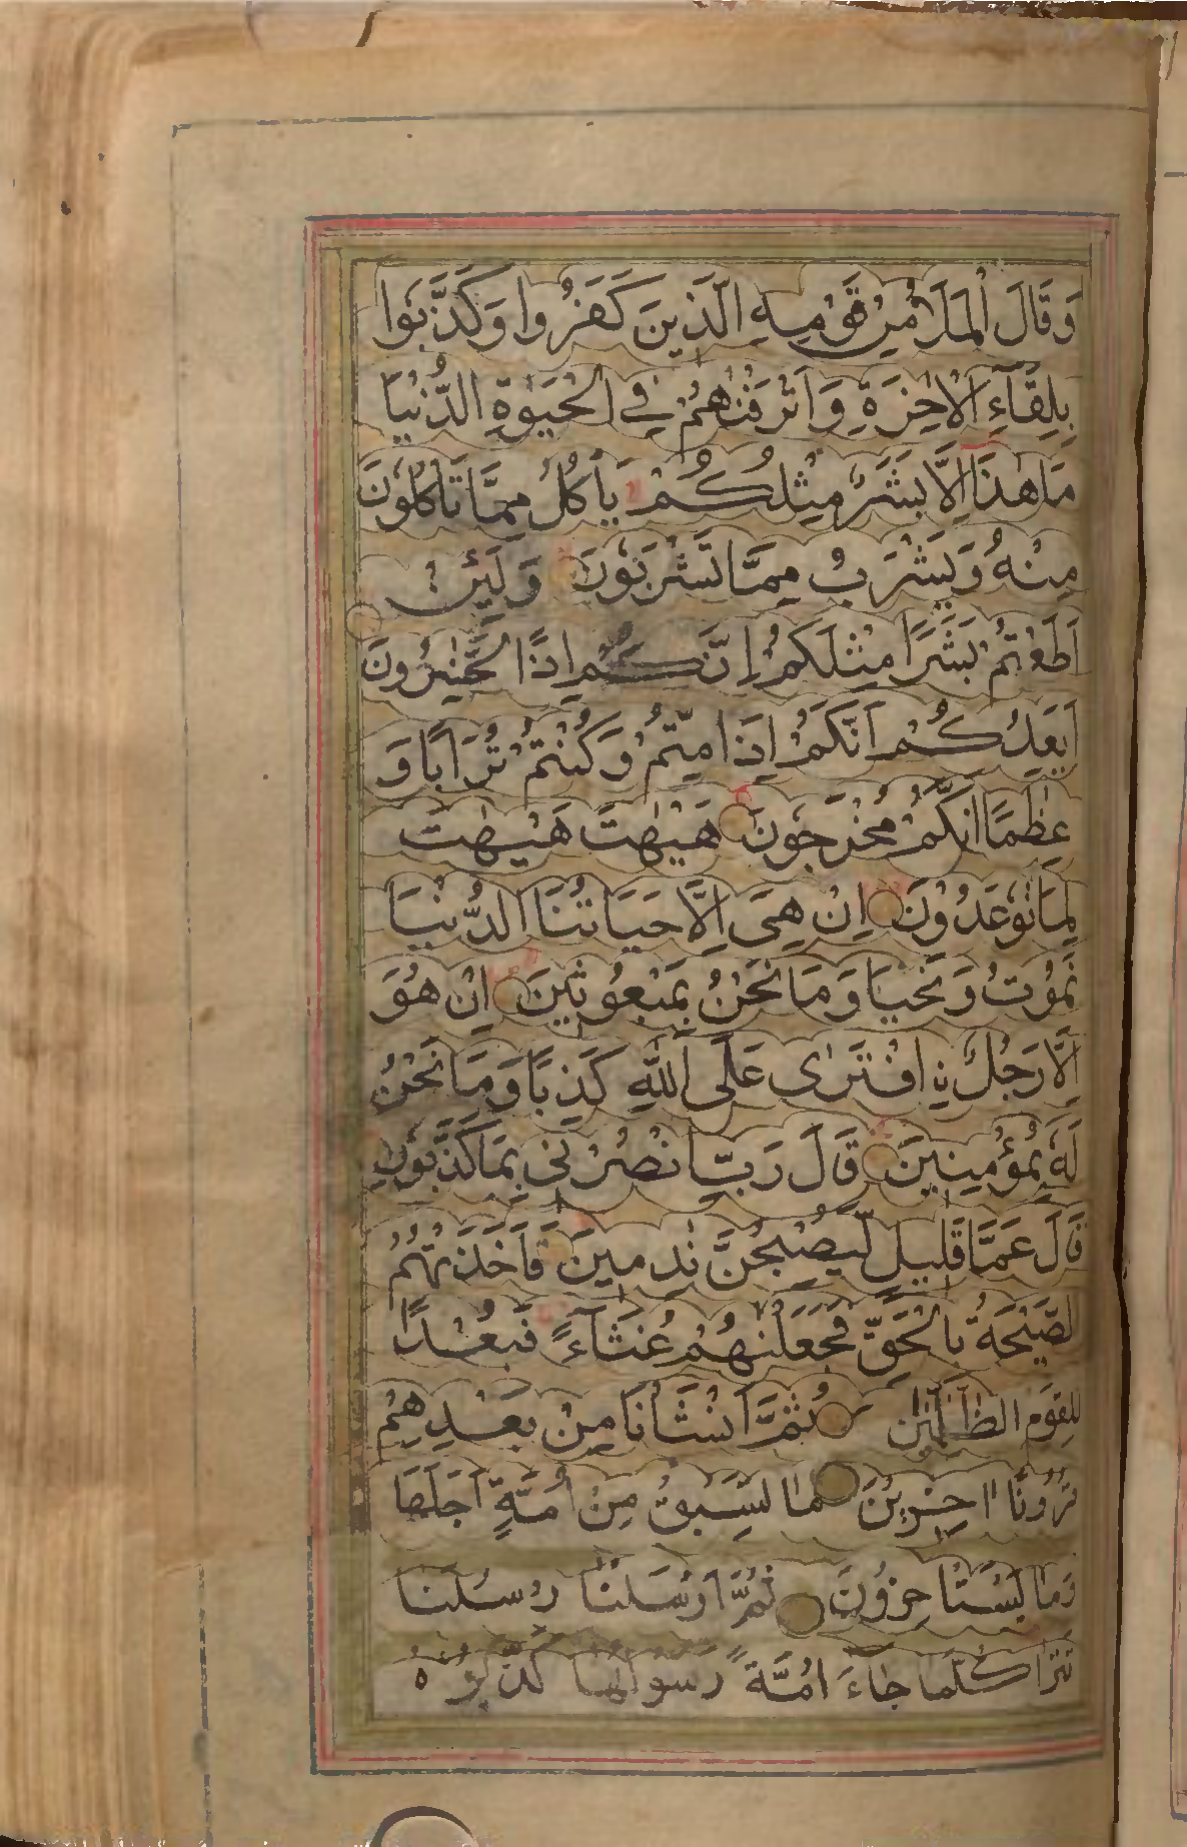 وَقَالَ الْمَلَأُ مِنْ قَوْمِهِ الَّذِينَ كَفَرُوا وَكَذَّبُوا
بِلِقَآءِ الْاٰخِرَةِ وَاَتْرَفْنٰهُمْ فِي الْحَيٰوةِ الدُّنْيَا
مَا هٰذَا اِلَّا بَشَرٌ مِثْلُكُمْ يَأْكُلُ مِمَّا تَأْكُلُونَ
مِنْهُ وَيَشْرَبُ مِمَّا تَشْرَبُونَ وَلَئِنْ
اَطَعْتُمْ بَشَرًا مِثْلَكُمْ اِنَّكُمْ اِذًا لَّخٰسِرُونَ
اَيَعِدُكُمْ اَنَّكُمْ اِذَا مِتُّمْ وَكُنْتُمْ تُرَابًا وَ
عِظَامًا اَنَّكُمْ مُخْرَجُونَ هَيْهَاتَ هَيْهَاتَ
لِمَا تُوعَدُونَ اِنْ هِيَ اِلَّا حَيَاتُنَا الدُّنْيَا
نَمُوتُ وَنَحْيَا وَمَا نَحْنُ بِمَبْعُوثِينَ اِنْ هُوَ
اِلَّا رَجُلٌ نِ افْتَرٰى عَلَى اللّٰهِ كَذِبًا وَمَا نَحْنُ
لَهٗ بِمُؤْمِنِينَ قَالَ رَبِّ انْصُرْنِي بِمَا كَذَّبُونِ
قَالَ عَمَّا قَلِيلٍ لَّيُصْبِحُنَّ نٰدِمِينَ فَاَخَذَتْهُمُ
الصَّيْحَةُ بِالْحَقِّ فَجَعَلْنٰهُمْ غُثَآءً فَبُعْدًا
لِلْقَوْمِ الظّٰلِمِينَ ثُمَّ اَنْشَأْنَا مِنْ بَعْدِهِمْ
قُرُونًا اٰخَرِينَ مَا تَسْبِقُ مِنْ اُمَّةٍ اَجَلَهَا
وَمَا يَسْتَأْخِرُونَ ثُمَّ اَرْسَلْنَا رُسُلَنَا
تَتْرَا كُلَّمَا جَاءَ اُمَّةً رَسُولُهَا كَذَّبُوهُ